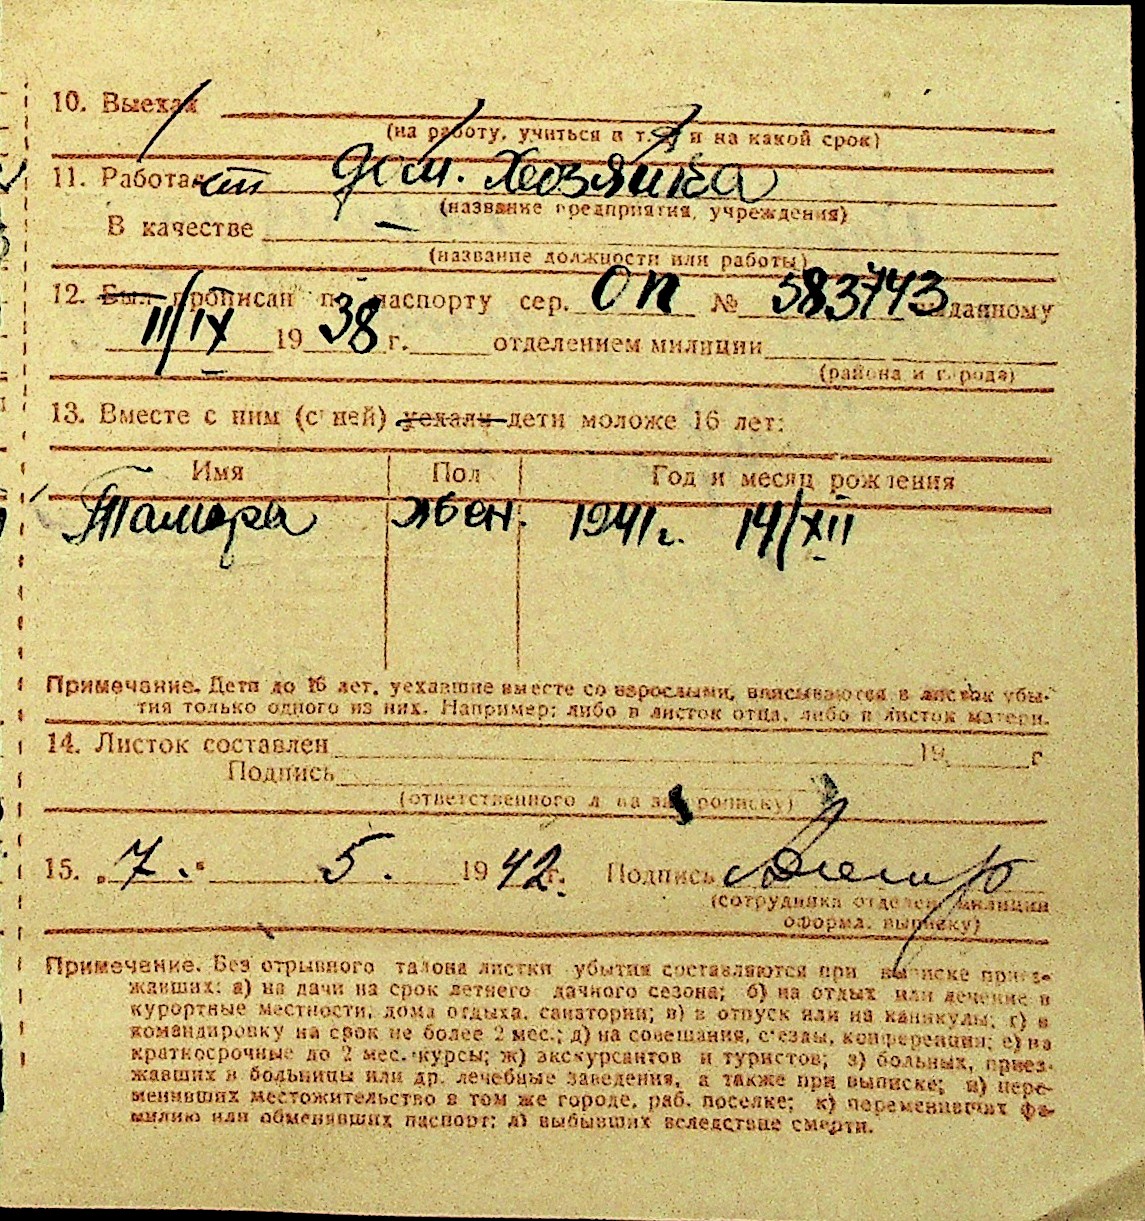 10. Выехал
(на работу, учиться и т. д. и на какой срок)
11. Работает дом. хозяйка
(название предприятия, учреждения)
В качестве —
(название должности или работы)
12. Был прописан по паспорту сер. ОП № 583743 выданному
II/IX 1938 г. отделением милиции
(района и города)
13. Вместе с ним (с ней) уехали дети моложе 16 лет:
Имя Пол Год и месяц рождения
Тамара жен. 1941 г. 14/XII
Примечание. Дети до 16 лет, уехавшие вместе со взрослыми, вписываются в листок убы-
тия только одного из них. Например: либо в листок отца, либо в листок матери.
14. Листок составлен 19 г
Подпись
(ответственного л на за прописку)
15. 7. 5. 1942 г. Подпись
(сотрудника отделен. милиции
оформл. выписку)
Примечание. Без отрывного талона листки убытия составляются при выписке приез-
жавших: а) на дачи на срок летнего дачного сезона; б) на отдых или лечение в
курортные местности, дома отдыха, санатории; в) в отпуск или на каникулы; г) в
командировку на срок не более 2 мес.; д) на совещания, съезды, конференции; е) на
краткосрочные до 2 мес. курсы; ж) экскурсантов и туристов; з) больных, приез-
жавших в больницы или др. лечебные заведения, а также при выписке; и) пере-
менивших местожительство в том же городе, раб. поселке; к) переменивших фа-
милию или обменявших паспорт; л) выбывших вследствие смерти.